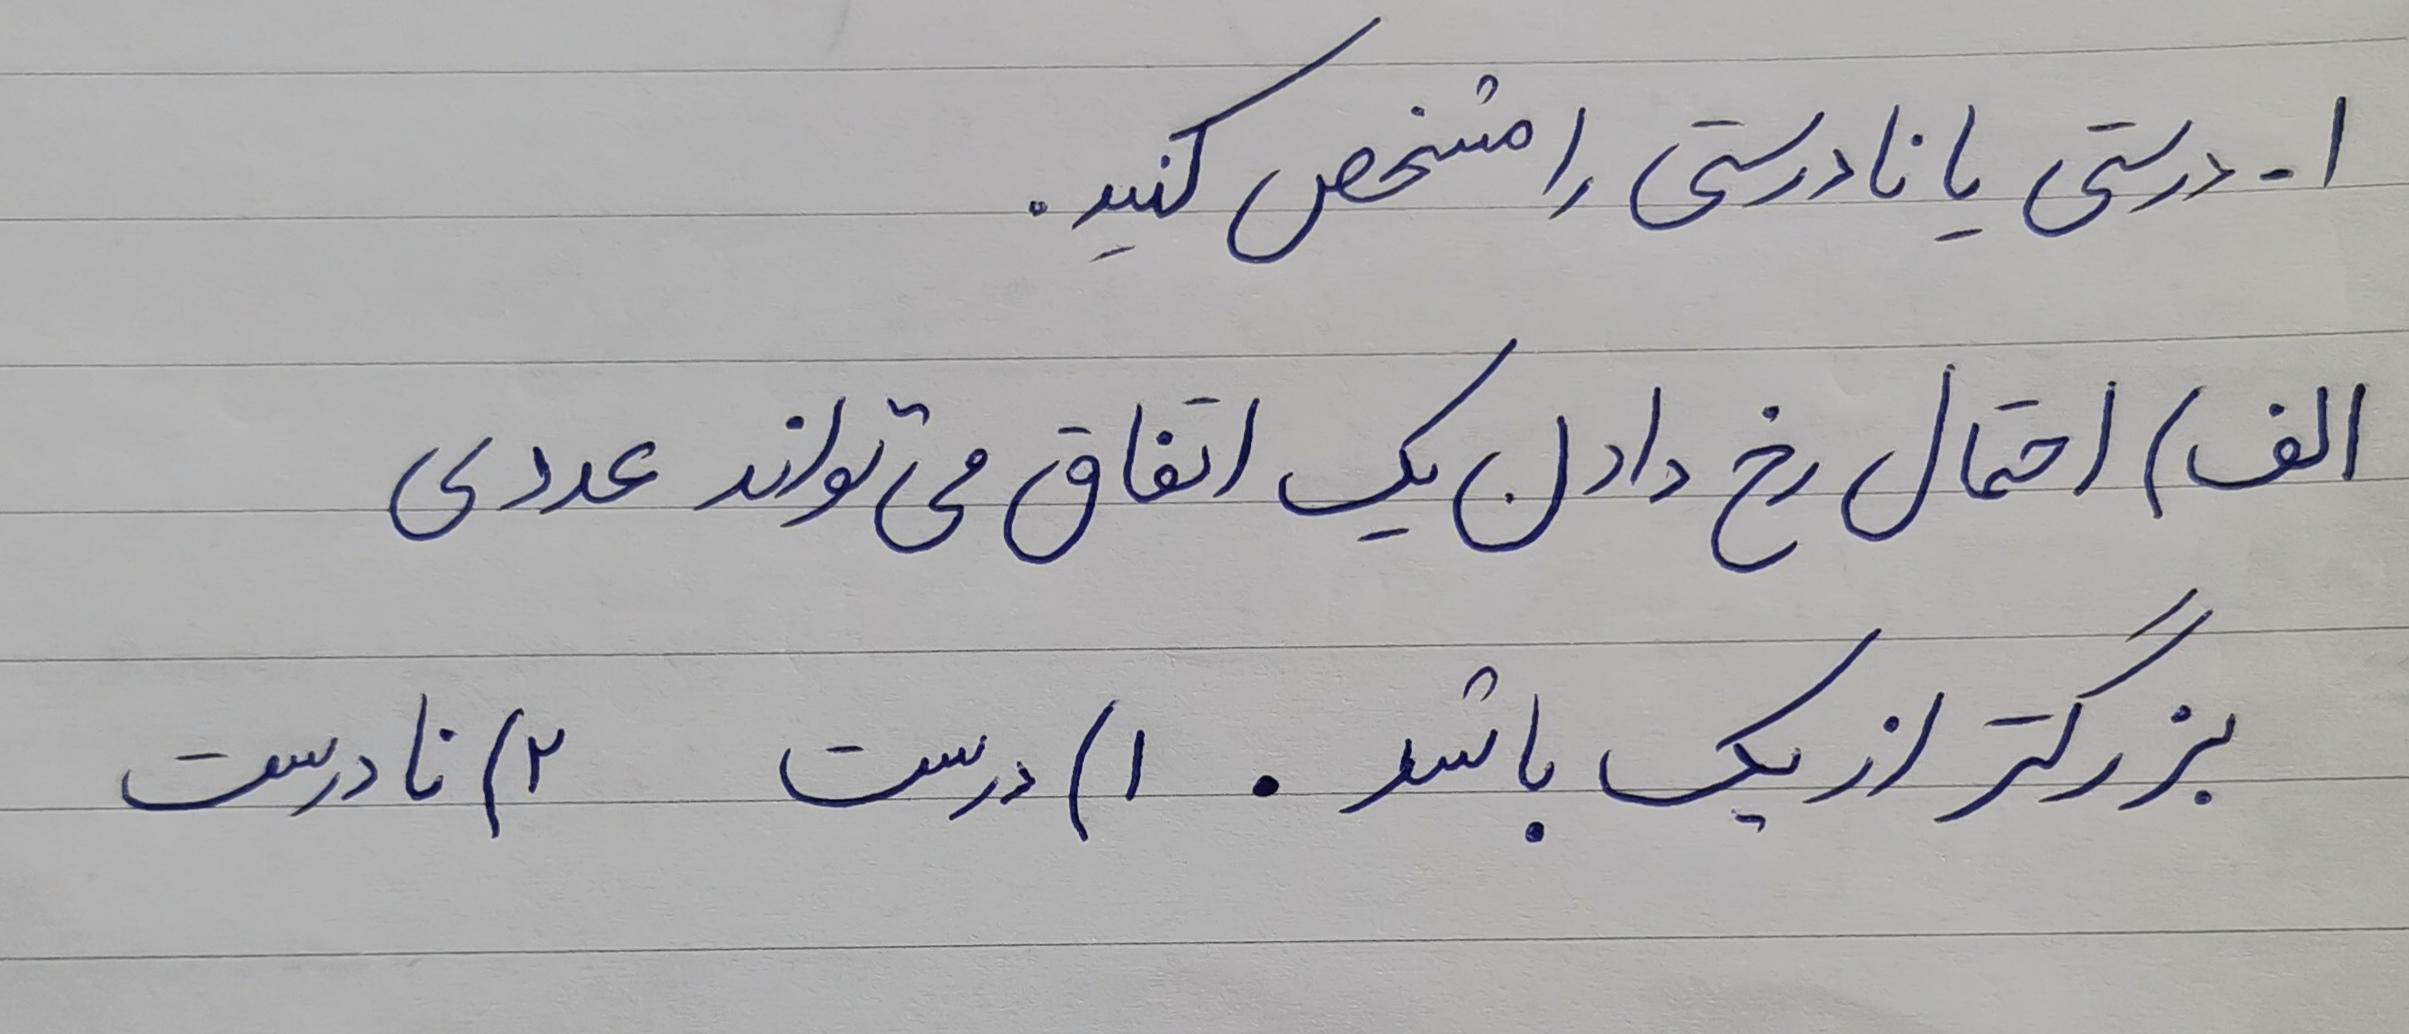 ۱- درستی یا نادرستی را مشخص کنید.
الف) احتمال رخ دادن یک اتفاق می‌تواند عددی
بزرگتر از یک باشد. ۱) درست ۲) نادرست